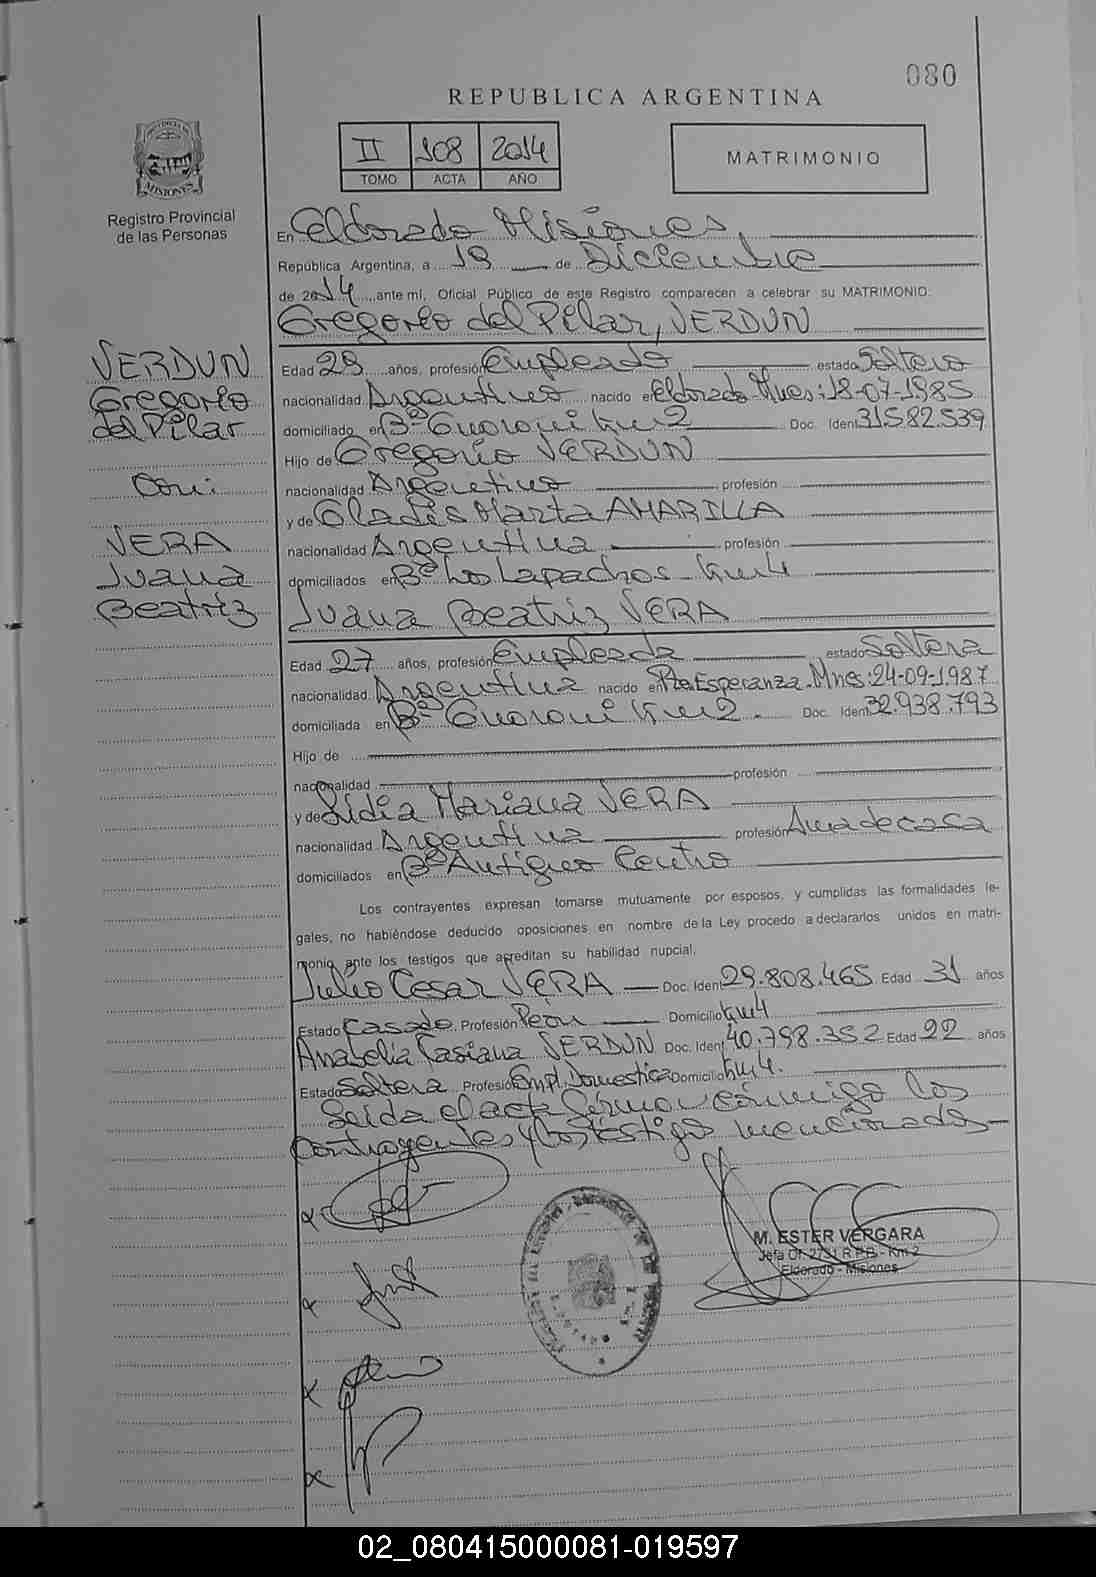 080
REPUBLICA ARGENTINA
II 108 2014
TOMO ACTA AÑO
MATRIMONIO
PROVINCIA DE
MISIONES
Registro Provincial
de las Personas
En Eldorado Misiones,
República Argentina, a 19 de Diciembre
de 2014 ante mí, Oficial Público de este Registro comparecen a celebrar su MATRIMONIO:
Gregorio del Pilar, VERDUN
VERDUN
Gregorio
del Pilar
Con:
VERA
Juana
Beatriz
Edad 29 años, profesión Empleado estado Soltero
nacionalidad Argentino nacido en Eldorado Mnes: 18-07-1985
domiciliado en Bº Guarani Km 2 Doc. Ident. 31.582.539
Hijo de Gregorio VERDUN
nacionalidad Argentino profesión
y de Gladis Marta AMARILLA
nacionalidad Argentina profesión
domiciliados en Bº Los Lapachos - Km 4
Juana Beatriz VERA
Edad 27 años, profesión Empleada estado Soltera
nacionalidad Argentina nacido en Pto Esperanza - Mnes: 24-09-1987
domiciliada en Bº Guarani Km 2. Doc. Ident. 32.938.793
Hijo de
nacionalidad profesión
y de Lidia Mariana VERA
nacionalidad Argentina profesión Ama de casa
domiciliados en Bº Antiguo Centro
Los contrayentes expresan tomarse mutuamente por esposos, y cumplidas las formalidades le-
gales, no habiéndose deducido oposiciones en nombre de la Ley procedo a declararlos unidos en matri-
monio ante los testigos que acreditan su habilidad nupcial.
Julio Cesar VERA Doc. Ident. 29.808.465 Edad 31 años
Estado Casado Profesión Peón Domicilio Km 4
Anabelia Tasiana VERDUN Doc. Ident. 40.798.352 Edad 22 años
Estado Soltera Profesión Empl. Domestica Domicilio Km 4.
Leida el acta firman conmigo los
contrayentes y los testigos mencionados
M. ESTER VERGARA
Jefa Of. 2731 R.P.P. - Km 2
Eldorado - Misiones
02_080415000081-019597